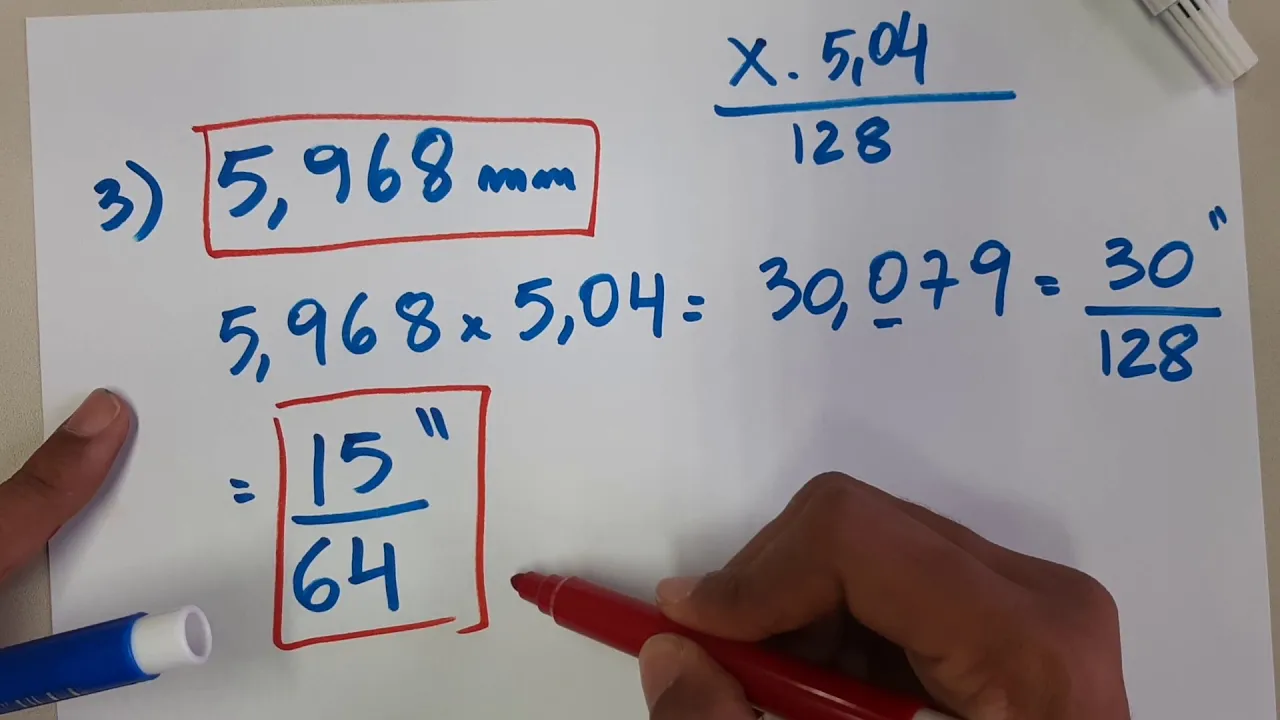 x . 5,04
128
3) 5,968 mm
5,968 x 5,04 = 30,079 = 30"
128
= 15"
64